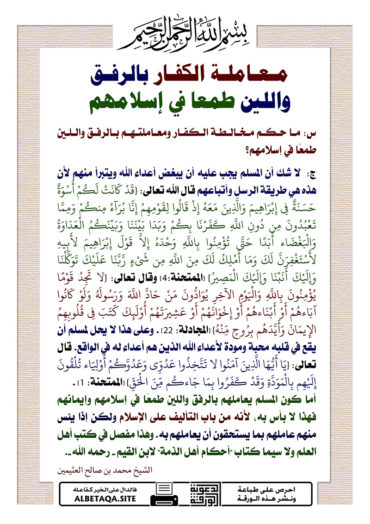 بسم الله الرحمن الرحيم
معاملة الكفار بالرفق
واللين طمعا في إسلامهم
س: ما حكم مخالطة الكفار ومعاملتهم بالرفق واللين
طمعا في إسلامهم؟
ج: لا شك أن المسلم يجب عليه أن يبغض أعداء الله ويتبرأ منهم لأن
هذه هي طريقة الرسل وأتباعهم قال الله تعالى: {قَدْ كَانَتْ لَكُمْ أُسْوَةٌ
حَسَنَةٌ فِي إِبْرَاهِيمَ وَالَّذِينَ مَعَهُ إِذْ قَالُوا لِقَوْمِهِمْ إِنَّا بُرَآءُ مِنكُمْ وَمِمَّا
تَعْبُدُونَ مِن دُونِ اللَّهِ كَفَرْنَا بِكُمْ وَبَدَا بَيْنَنَا وَبَيْنَكُمُ الْعَدَاوَةُ
وَالْبَغْضَاء أَبَدًا حَتَّى تُؤْمِنُوا بِاللَّهِ وَحْدَهُ إِلاَّ قَوْلَ إِبْرَاهِيمَ لأَبِيهِ
لأَسْتَغْفِرَنَّ لَكَ وَمَا أَمْلِكُ لَكَ مِنَ اللَّهِ مِن شَيْءٍ رَّبَّنَا عَلَيْكَ تَوَكَّلْنَا
وَإِلَيْكَ أَنَبْنَا وَإِلَيْكَ الْمَصِيرُ} الممتحنة:4؛ وقال تعالى: {لا تَجِدُ قَوْمًا
يُؤْمِنُونَ بِاللَّهِ وَالْيَوْمِ الآخِرِ يُوَادُّونَ مَنْ حَادَّ اللَّهَ وَرَسُولَهُ وَلَوْ كَانُوا
آبَاءهُمْ أَوْ أَبْنَاءهُمْ أَوْ إِخْوَانَهُمْ أَوْ عَشِيرَتَهُمْ أُوْلَئِكَ كَتَبَ فِي قُلُوبِهِمُ
الإِيمَانَ وَأَيَّدَهُم بِرُوحٍ مِّنْهُ} المجادلة: 22. وعلى هذا لا يحل لمسلم أن
يقع في قلبه محبة ومودة لأعداء الله الذين هم أعداء له في الواقع. قال
تعالى: {يَا أَيُّهَا الَّذِينَ آمَنُوا لا تَتَّخِذُوا عَدُوِّي وَعَدُوَّكُمْ أَوْلِيَاء تُلْقُونَ
إِلَيْهِم بِالْمَوَدَّةِ وَقَدْ كَفَرُوا بِمَا جَاءكُم مِّنَ الْحَقِّ} الممتحنة: 1.
أما كون المسلم يعاملهم بالرفق واللين طمعا في إسلامهم وإيمانهم
فهذا لا بأس به. لأنه من باب التأليف على الإسلام ولكن إذا يئس
منهم عاملهم بما يستحقون أن يعاملهم به. وهذا مفصل في كتب أهل
العلم ولا سيما كتاب "أحكام أهل الذمة" لابن القيم. رحمه الله...
الشيخ محمد بن صالح العثيمين
احرص على طباعة
ونشر هذه الورقة
الدعوية
الورقة
فالدال على الخير كفاعله
ALBETAQA.SITE